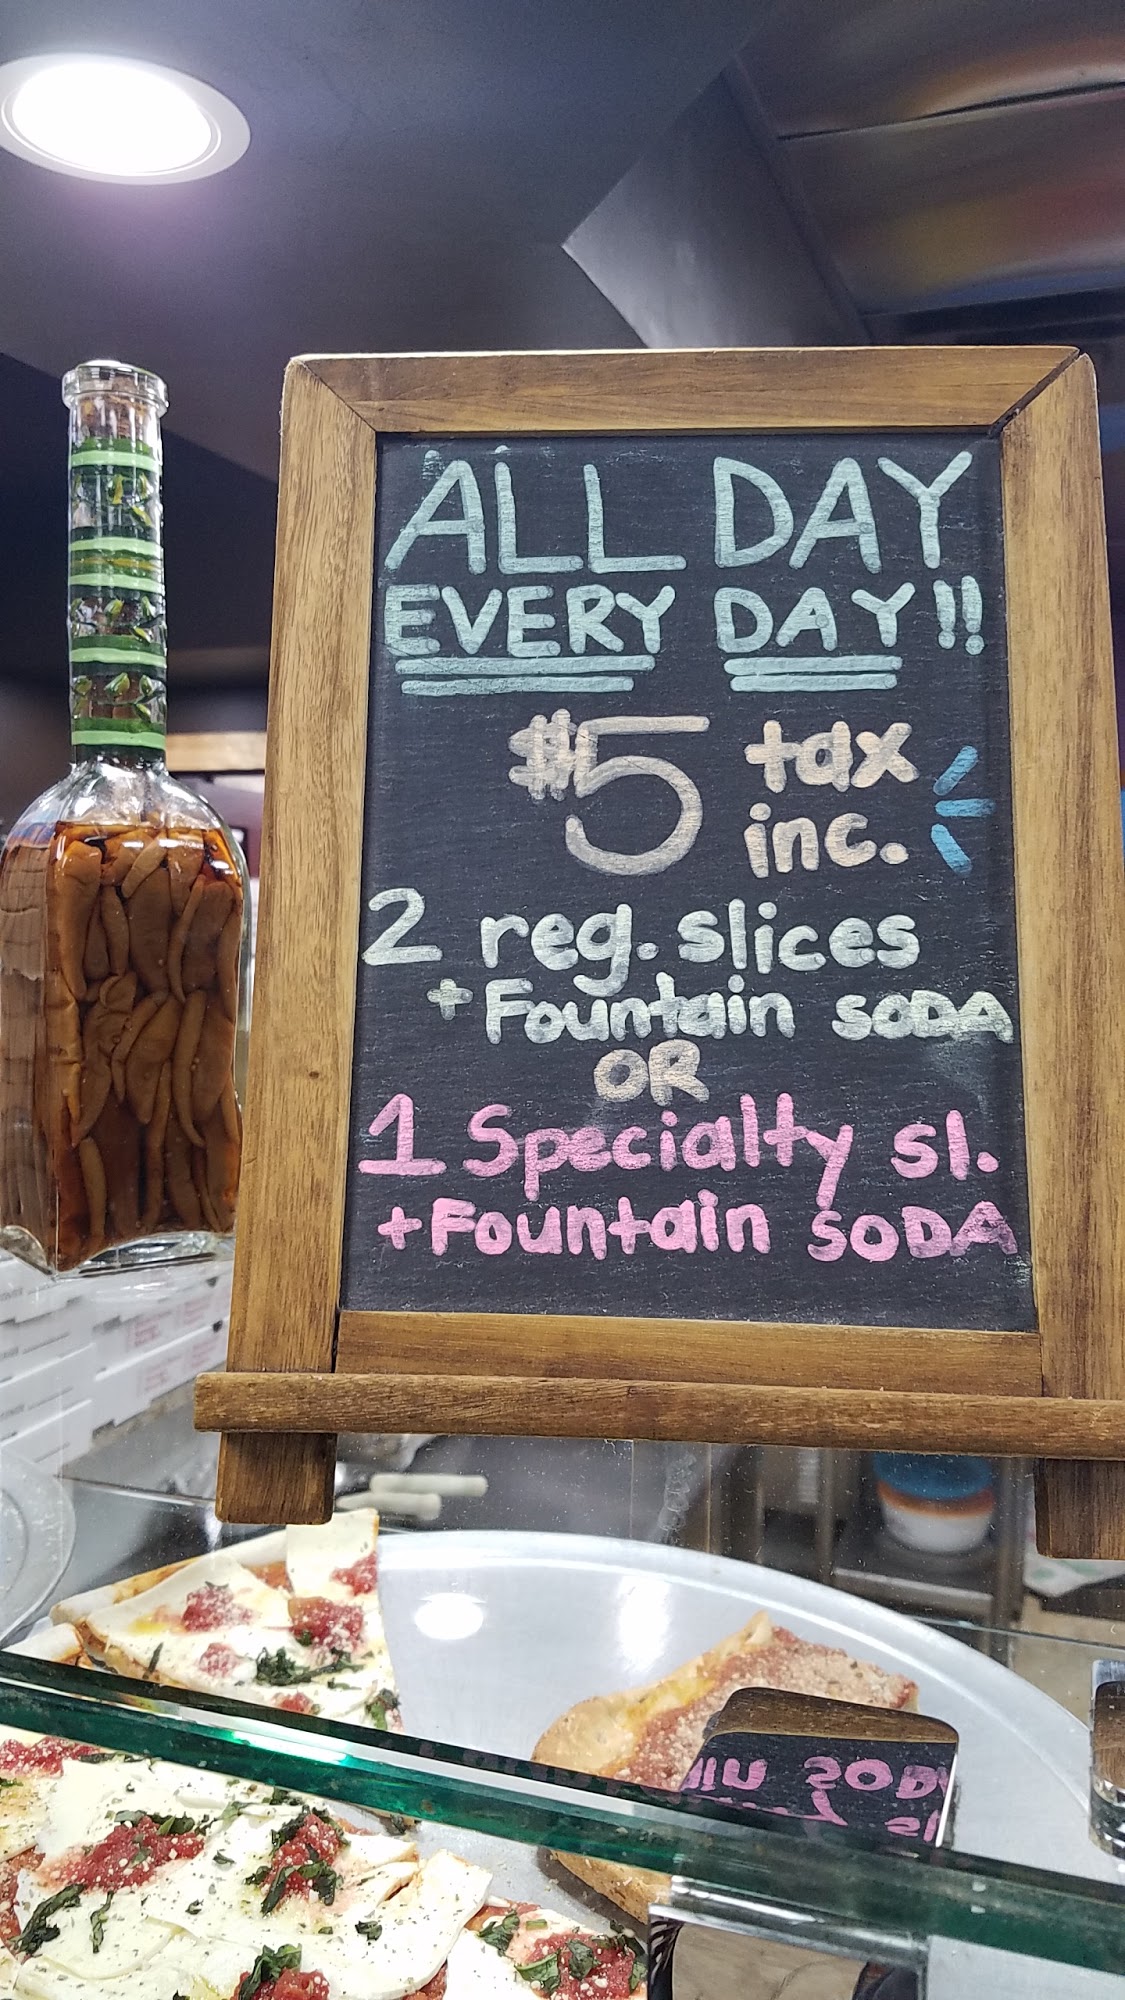 ALL DAY
EVERY DAY!!
$5 tax
inc.
2 reg. slices
+ Fountain SODA
OR
1 Specialty sl.
+ Fountain SODA